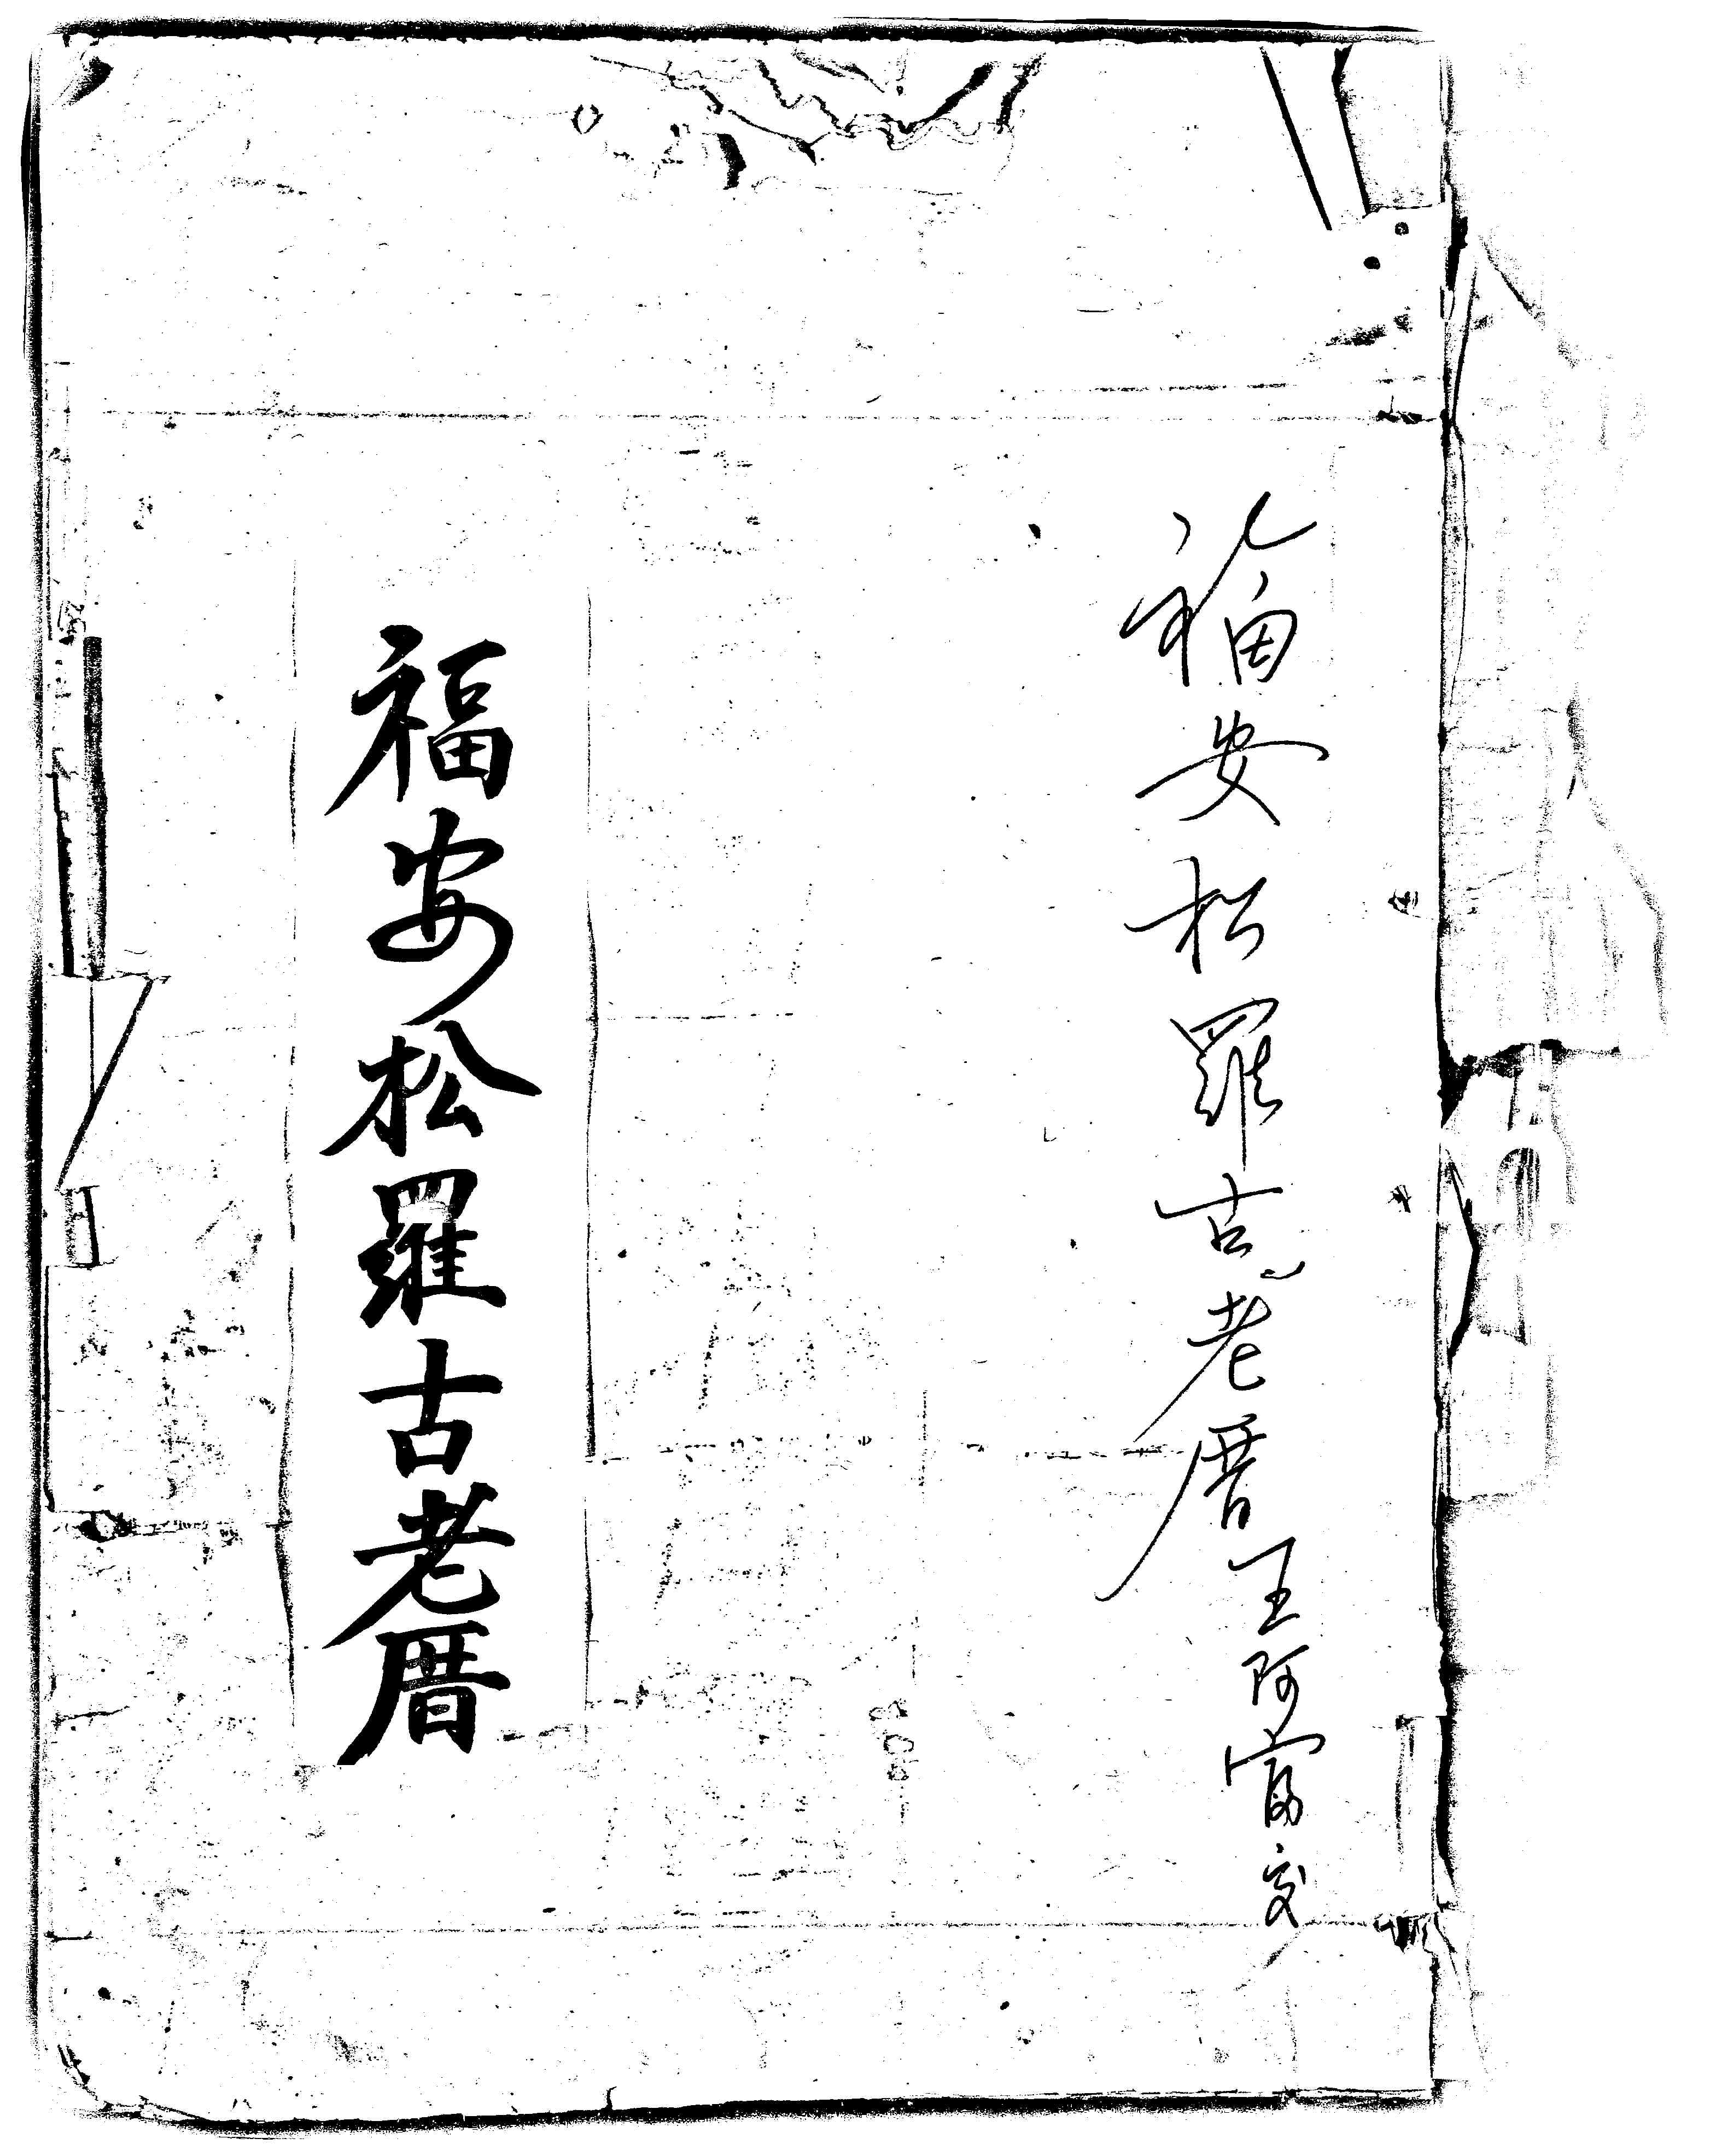 福安松羅古老厝王阿富交
福安松羅古老厝